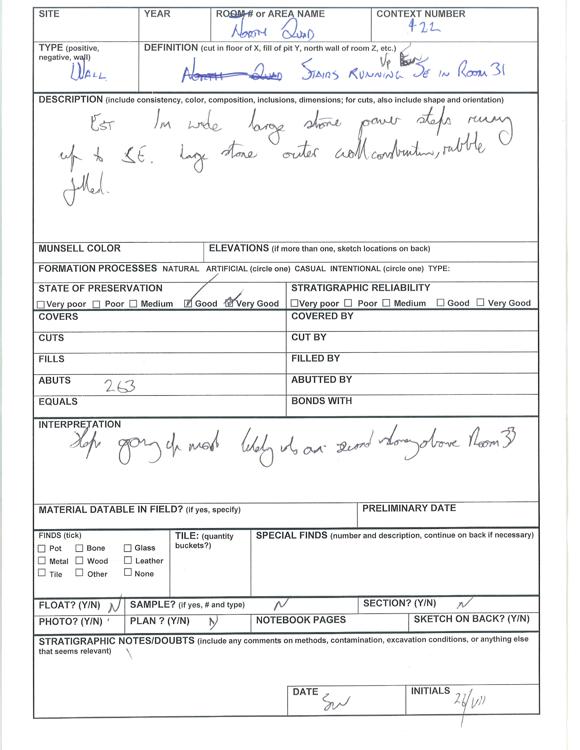 SITE YEAR ROOM # or AREA NAME CONTEXT NUMBER
North Quad 422
TYPE (positive, negative, wall) DEFINITION (cut in floor of X, fill of pit Y, north wall of room Z, etc.)
WALL North Quad STAIRS RUNNING Up SE IN ROOM 31
DESCRIPTION (include consistency, color, composition, inclusions, dimensions; for cuts, also include shape and orientation)
Est 1m wide large stone paver steps runing
up to SE. Large stone outer wall construction, rubble
filled.
MUNSELL COLOR ELEVATIONS (if more than one, sketch locations on back)
FORMATION PROCESSES NATURAL ARTIFICIAL (circle one) CASUAL INTENTIONAL (circle one) TYPE:
STATE OF PRESERVATION STRATIGRAPHIC RELIABILITY
Very poor Poor Medium Good Very Good Very poor Poor Medium Good Very Good
COVERS COVERED BY
CUTS CUT BY
FILLS FILLED BY
ABUTS 263 ABUTTED BY
EQUALS BONDS WITH
INTERPRETATION
Steps going up most likely second storey above Room 33
MATERIAL DATABLE IN FIELD? (if yes, specify) PRELIMINARY DATE
FINDS (tick) TILE: (quantity buckets?) SPECIAL FINDS (number and description, continue on back if necessary)
Pot Bone Glass
Metal Wood Leather
Tile Other None
FLOAT? (Y/N) N SAMPLE? (if yes, # and type) N SECTION? (Y/N) N
PHOTO? (Y/N) PLAN ? (Y/N) N NOTEBOOK PAGES SKETCH ON BACK? (Y/N)
STRATIGRAPHIC NOTES/DOUBTS (include any comments on methods, contamination, excavation conditions, or anything else
that seems relevant)
DATE INITIALS